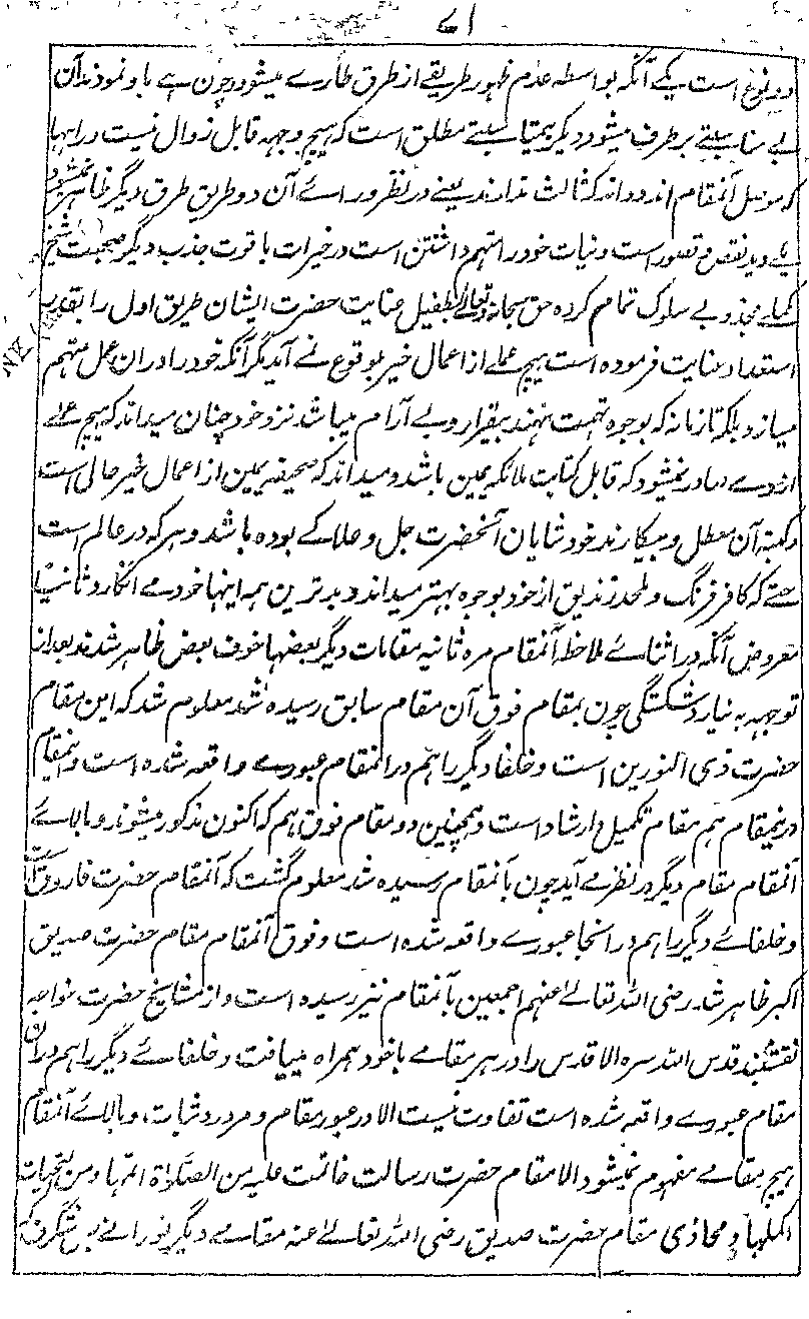 ۱۷
دو نوع است یکے آنکہ بواسطہ عدم ظہور طریقے از طرق طارے میشود چون رہے باو نمودند آن
بے مناسبتے برطرف میشود دیگر بیمناسبتے مطلق است کہ ہیچ وجہہ قابل زوال نیست و راہہا
کہ موصل آنمقام اند دو اند کہ ثالث ندارند یعنے در نظر ورائے آن دو طریق طرق دیگر ظاہر نمیشود
یکے دید نقص و قصور است و نیات خود را متہم داشتن است در خیرات با قوت جذب دیگر صحبت شیخ
مکمل مجذوبے سلوک تمام کردہ حق سبحانہ وتعالے بطفیل عنایت حضرت ایشان طریق اول را بقدر
استعداد عنایت فرمودہ است ہیچ عملے از اعمال خیر بوقوع نمے آید مگر آنکہ خود را در ان عمل متہم
میسازد بلکہ تا زمانے کہ بوجوہ تہمت ننہند بیقرار و بے آرام میباشد نزد خود چنان میداند کہ ہیچ عملے
ازوے صادر نمیشود کہ قابل کتابت ملائکہ یمین باشد و میداند کہ صحیفہ یمین از اعمال خیر خالی است
و کتبہ آن معطل و بیکارند خود شایان آنحضرت جل و علا کے بودہ باشد و ہر کہ در عالم است
حتے کہ کافر فرنگ و ملحد زندیق از خود بوجوہ بہتر میداند و بدترین ہمہ اینہا خود مے انگارد ثانیًا
معروض آنکہ در اثنائے ملاحظہ آنمقام مرہ ثانیہ مقامات دیگر بعضہا فوق بعض ظاہر شدند بعد از
توجہہ بہ نیاز و شکستگی چون بمقام فوق آن مقام سابق رسیدہ شد معلوم شد کہ این مقام
حضرت ذی النورین است و خلفا دیگر را ہم در انمقام عبورے واقعہ شدہ است و اینمقام
در نمیقام ہم مقام تکمیل و ارشاد است و ہمچنین دو مقام فوق ہم کہ اکنون مذکور میشوند و بالائے
آنمقام مقام دیگر در نظر مے آید چون بآنمقام رسیدہ شد معلوم گشت کہ آنمقام حضرت فاروق است
و خلفائے دیگر را ہم در انجا عبورے واقعہ شدہ است و فوق آنمقام مقام حضرت صدیق
اکبر ظاہر شد رضی اللہ تعالے عنہم اجمعین بآنمقام نیز رسیدہ است و از مشایخ حضرت خواجہ
نقشبند قدس اللہ سرہ الاقدس را در ہر مقامے با خود ہمراہ مییافت و خلفائے دیگر را ہم در ان
مقام عبورے واقعہ شدہ است تفاوت نیست الا در عبور و مقام و مرور و ثبات و بالائے آنمقام
ہیچ مقامے مفہوم نمیشود الا مقام حضرت رسالت خاتمت علیہ من الصلاۃ اتمہا و من التحیات
اکملہا و محاذی مقام حضرت صدیق رضی اللہ تعالے عنہ مقامے دیگر نورانے بس شگرف کہ